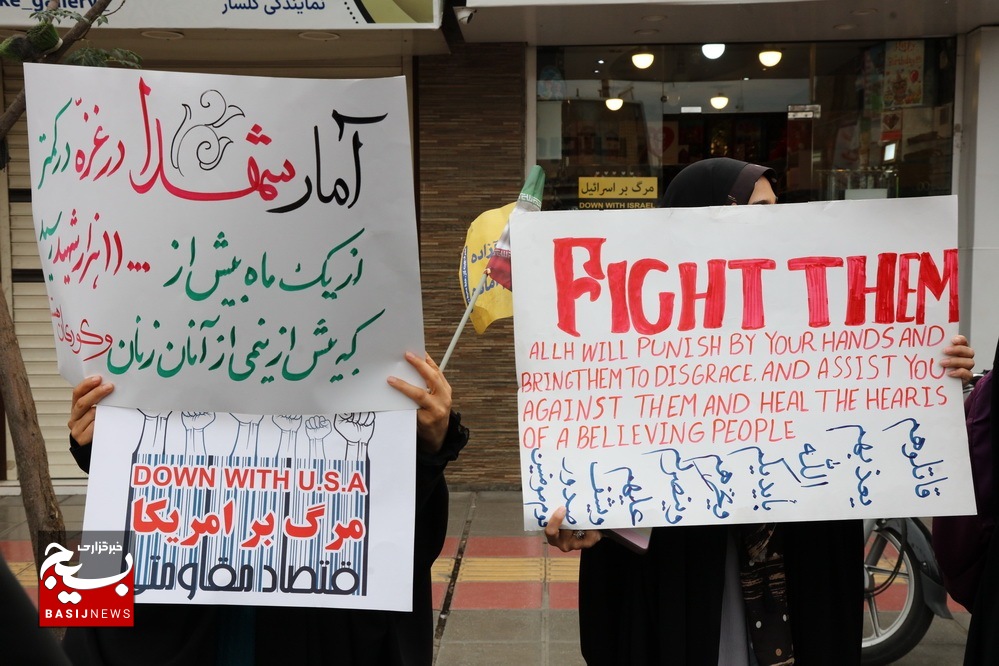 ke_gallery
نمایندگی گلسار
آمار شهدا در غزه در کمتر
از یک ماه بیش از ۱۱۰۰۰ هزار شهید رسید
که بیش از نیمی از آنان زنان وکودکان
DOWN WITH U.S.A
مرگ بر امریکا
اقتصاد مقاومتی
مرگ بر اسرائیل
DOWN WITH ISRAEL
FIGHT THEM
ALLH WILL PUNISH BY YOUR HANDS AND
BRINGTHEM TO DISGRACE, AND ASSIST YOU
AGAINST THEM AND HEAL THE HEARIS
OF A BELIEVING PEOPLE
قاتلوهم یعذبهم الله بایدیکم ویخزهم وینصرکم علیهم ویشف صدور قوم مومنین
خبرگزاری
بسیج
BASIJNEWS